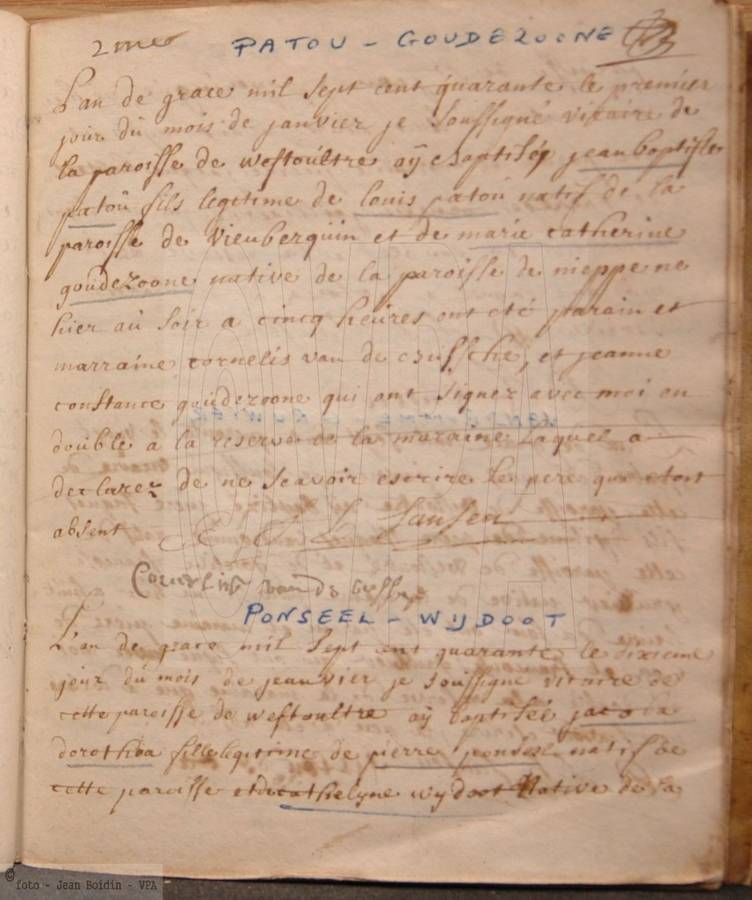 2me
PATOU - GOUDEZOONE
L'an de grace mil sept cent quarante le premier
jour du mois de janvier je soussigné vicaire de
la paroisse de westoultre aÿ baptiséz jean baptiste
patoù fils legitime de louis patoù natif de la
paroisse de vieuberquin et de marie catherine
goudezoone native de la paroisse de nieppe ne
hier aù soir a cincq heures ont été parain et
marraine cornelis van de , et jeanne
constance goudezoone qui ont signez avec moi en
double a la reserve de la maraine laquel a
declarez de ne scavoir escrire le pere qui etoit
absent
Jansen
van de
PONSEEL - WIJDOOT
L'an de grace mil sept cent quarante le dixieme
jour dù mois de jeanvier je soussigne vicaire de
cette paroisse de westoultre aÿ baptiséé jacoba
dorothea fille legitime de pierre ponseel natif de
cette paroisse et de cathelyne wydoot Native de la
© foto - Jean Boidin - VPA